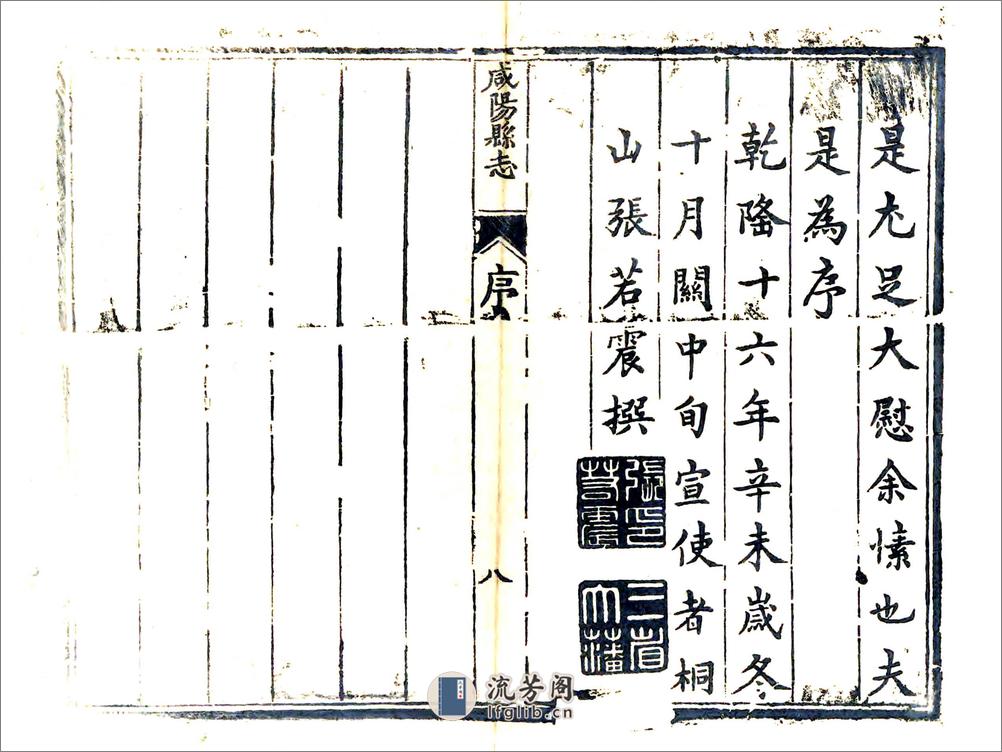 是尤足大慰余愫也夫
是為序
乾隆十六年辛未歲冬
十月關中旬宣使者桐
山張若震撰
張印若震
咸陽縣志
序
八
流芳阁
lfglib.cn